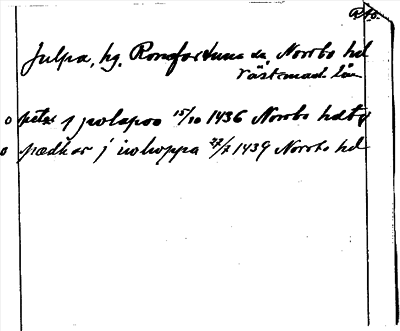 Julpa, hg. Romfartuna sn, Norrbo hd
Västmanl. län
o petær j jwlapoo 15/10 1436 Norrbo hdtg
o pædhar j iwlwoppa 27/7 1439 Norrbo hd